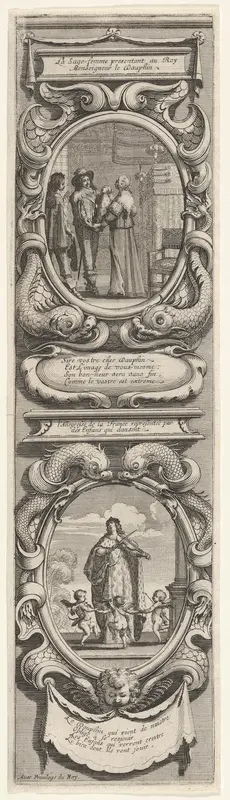 La Sage-femme presentant au Roy
Monseigneur le Dauphin
Sire vostre cher Dauphin
Est l'image de vous-mesme:
Son bon-heur sera sans fin,
Comme le vostre est extreme.
l'Allegresse de la France representée par
des Enfans qui dansent.
Le Dauphin qui vient de naistre
se resjouir
Les Enfans qui verront croistre
Le bien dont ils vont jouir.
Avec Privilege du Roy.